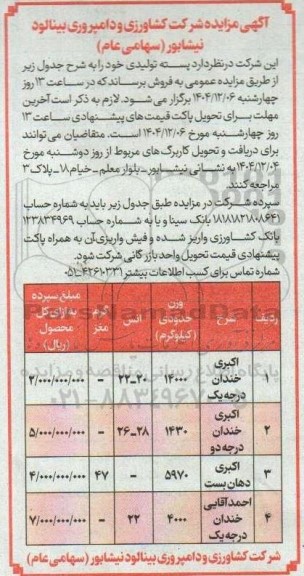 آگهی مزایده شرکت کشاورزی و دامپروری بینالود
نیشابور (سهامی عام)
این شرکت در نظر دارد پسته تولیدی خود را به شرح جدول زیر
از طریق مزایده عمومی به فروش برساند که در ساعت ۱۳ روز
چهارشنبه ۱۴۰۴/۱۲/۰۶ برگزار می شود. لازم به ذکر است آخرین
مهلت برای تحویل پاکت قیمت های پیشنهادی ساعت ۱۳
روز چهارشنبه مورخ ۱۴۰۴/۱۲/۰۶ است. متقاضیان می توانند
برای دریافت و تحویل کاربرگ های مربوط از روز دوشنبه مورخ
۱۴۰۴/۱۲/۰۴ به نشانی نیشابور - بلوار معلم - خیام ۱۸ - پلاک ۳
مراجعه کنند.
سپرده شرکت در مزایده طبق جدول زیر باید به شماره حساب
بانک سینا و یا به شماره حساب ۱۲۳۸۳۴۹۶۹
بانک کشاورزی واریز شده و فیش واریزی آن به همراه پاکت
پیشنهادی قیمت تحویل واحد بازرگانی شرکت شود.
شماره تماس برای کسب اطلاعات بیشتر ۴۲۶۱۰۳۳۱-۰۵۱
ردیف شرح وزن حدودی (کیلوگرم) انس گرم مغز مبلغ سپرده به ازای کل محصول (ریال)
۱ اکبری خندان درجه یک ۱۴۰۰۰ ۲۰-۲۲ - ۲/۰۰۰/۰۰۰/۰۰۰
۲ اکبری خندان درجه دو ۱۴۳۰ ۲۸-۲۶ - ۵/۰۰۰/۰۰۰/۰۰۰
۳ اکبری دهان بست ۵۹۷۰ - ۴۷ ۴/۰۰۰/۰۰۰/۰۰۰
۴ احمدآقایی خندان درجه یک ۴۰۰۰ ۲۲ - ۷/۰۰۰/۰۰۰/۰۰۰
شرکت کشاورزی و دامپروری بینالود نیشابور (سهامی عام)
پایگاه اطلاع رسانی مناقصه و مزایده
۰۲۱-۸۸۳۴۹۶۷۰